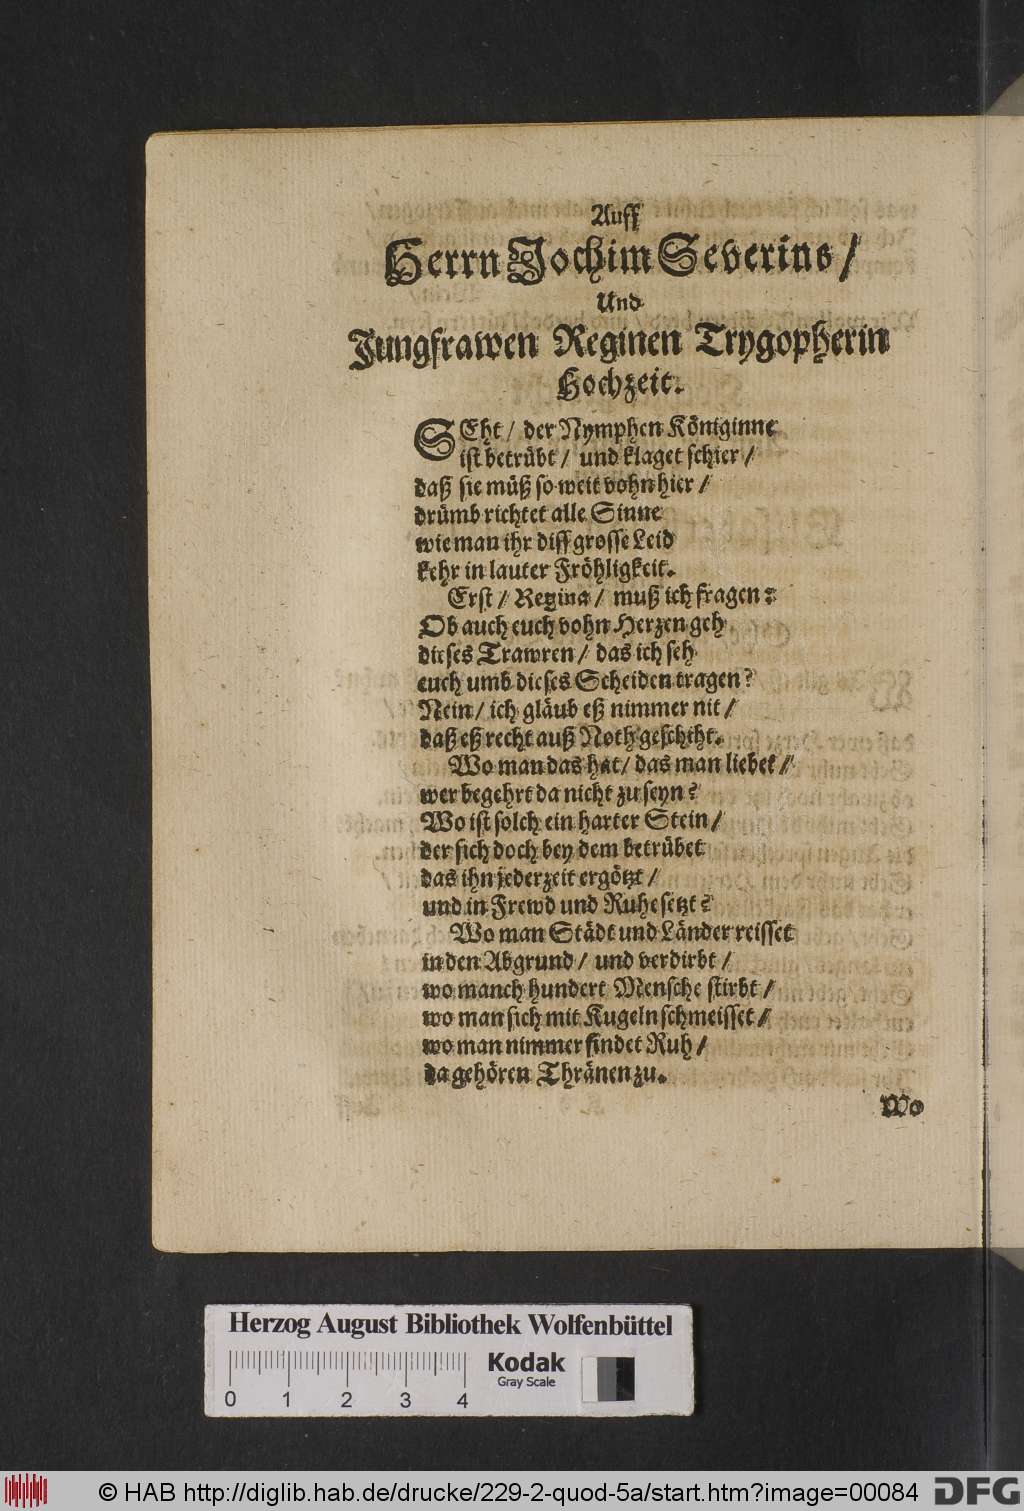 Auff
Herrn Jochim Severins /
Und
Jungfrawen Reginen Trygopherin
Hochzeit.
SEht / der Nymphen Königinne
ist betrübt / und klaget schier /
daß sie müß so weit vohn hier /
drümb richtet alle Sinne
wie man ihr diß grosse Leid
kehr in lauter Fröhligkeit.
Erst / Regina / muß ich fragen:
Ob auch euch vohn Herzen geh
dieses Trawren / das ich seh
euch umb dieses Scheiden tragen?
Nein / ich gläub eß nimmer nit /
daß eß recht auß Noth geschiht.
Wo man das hat / das man liebet /
wer begehrt da nicht zu seyn?
Wo ist solch ein harter Stein /
der sich doch bey dem betrübet
das ihn jederzeit ergötzt /
und in Frewd und Ruhe setzt?
Wo man Städt und Länder reisset
in den Abgrund / und verdirbt /
wo manch hundert Mensche stirbt /
wo man sich mit Kugeln schmeisset /
wo man nimmer findet Ruh /
da gehören Thränen zu.
Wo
Herzog August Bibliothek Wolfenbüttel
Kodak
Gray Scale
0 1 2 3 4
© HAB http://diglib.hab.de/drucke/229-2-quod-5a/start.htm?image=00084
DFG